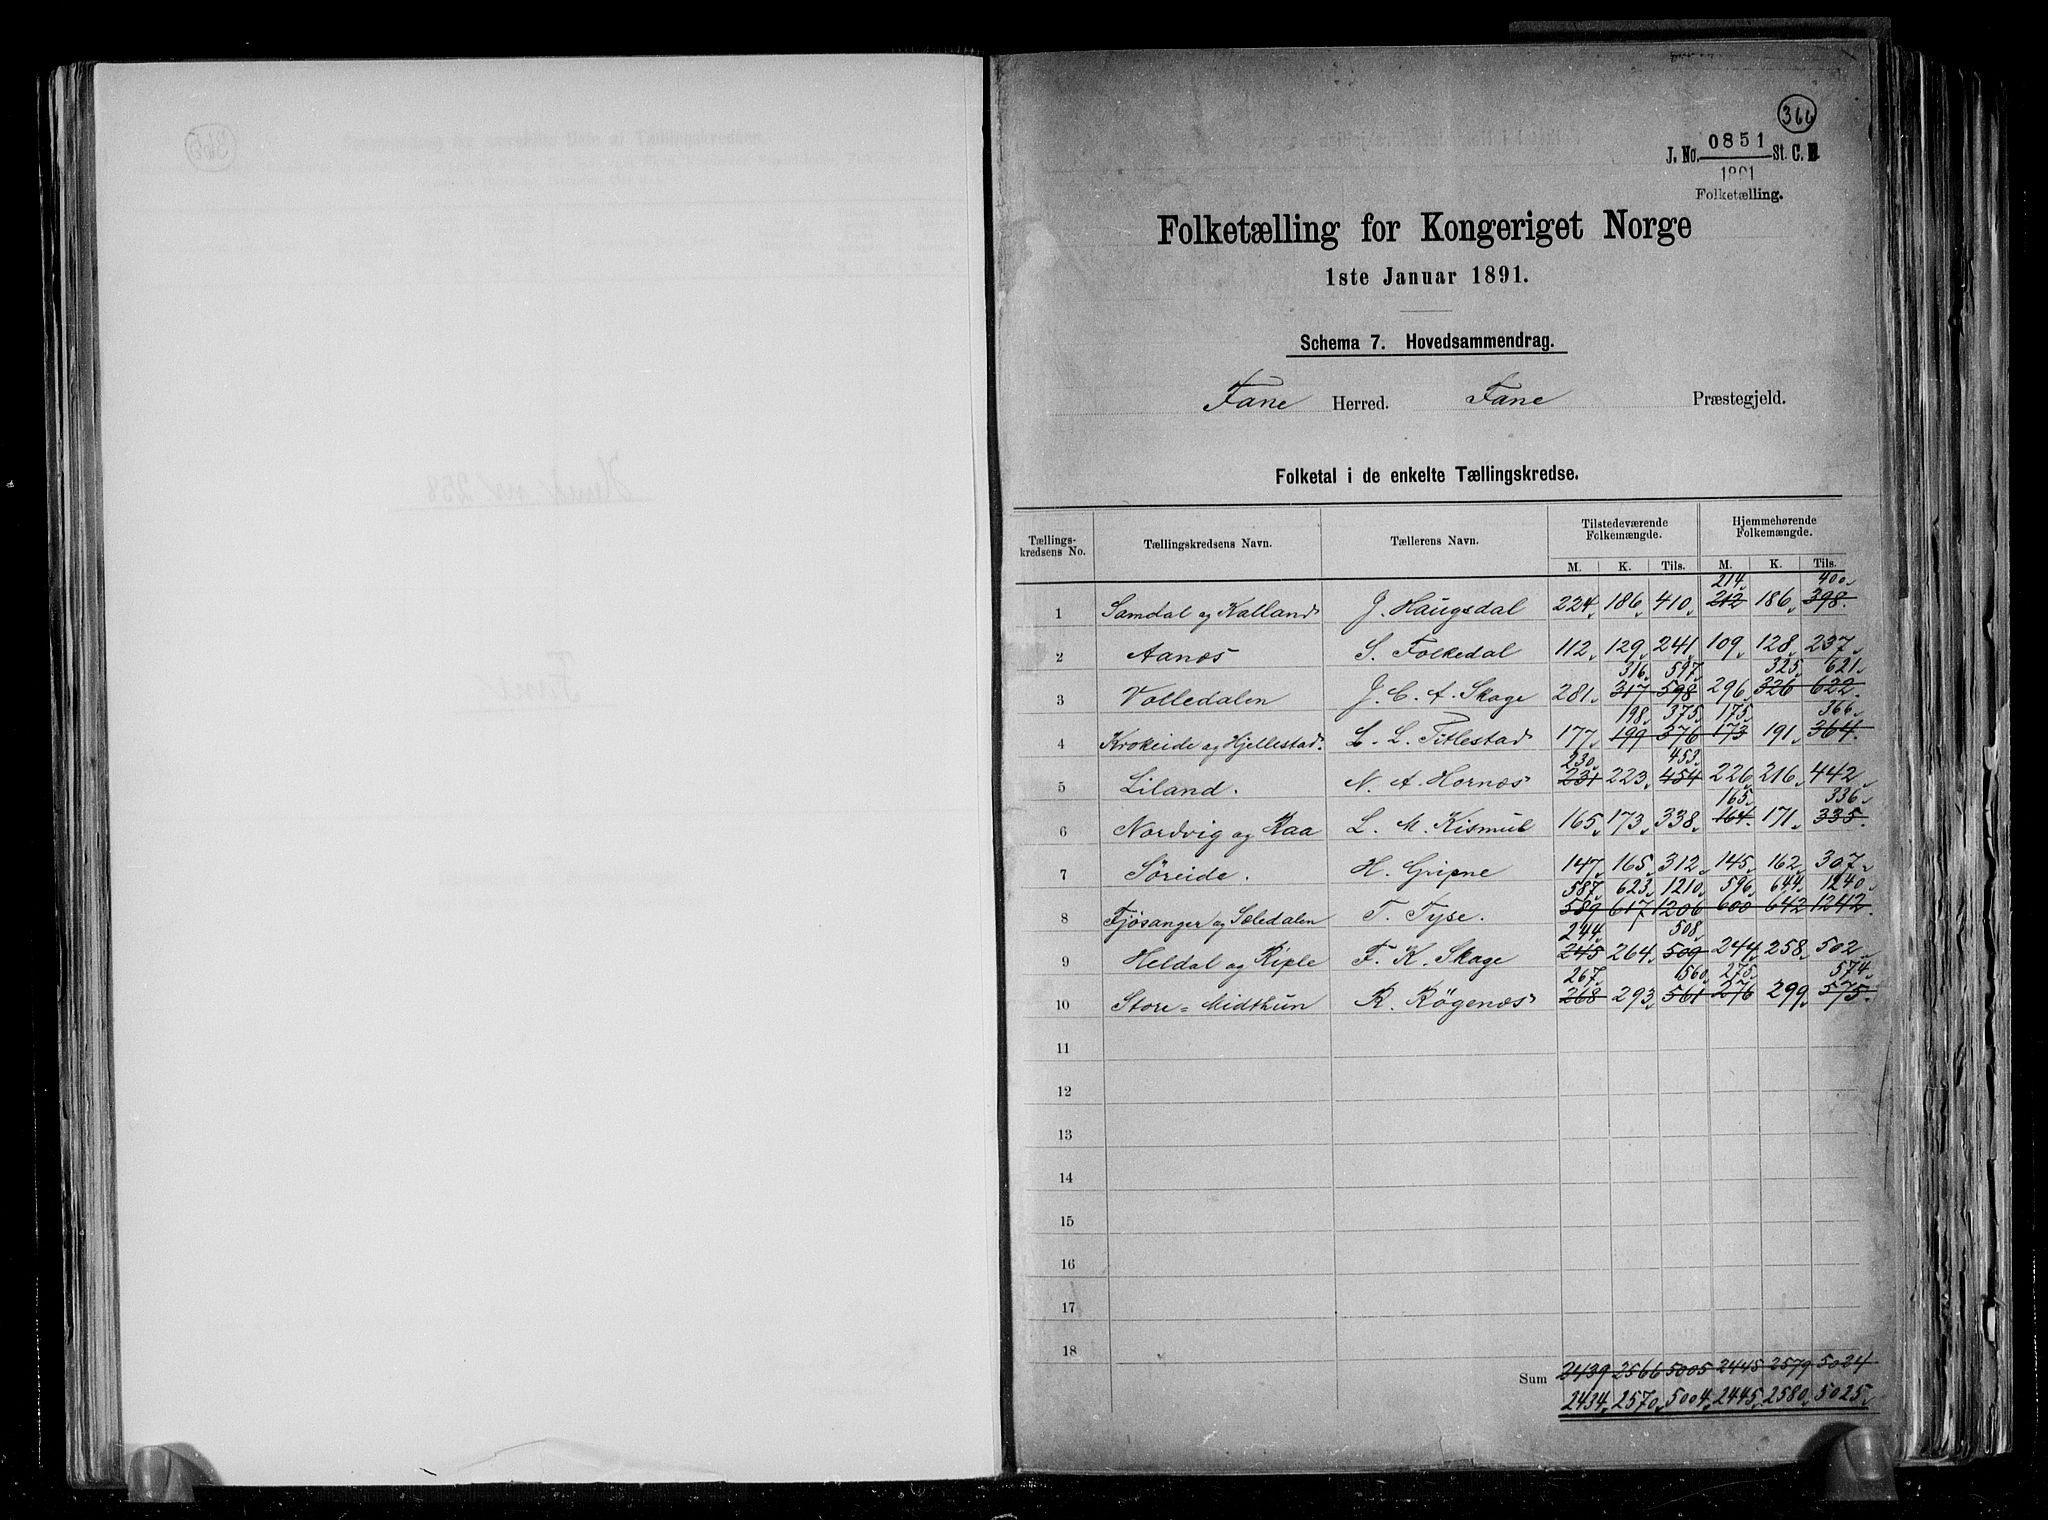 366
J. No. 0851 St. C. B.
1891
Folketælling.
Folketælling for Kongeriget Norge
1ste Januar 1891.
Schema 7. Hovedsammendrag.
Fane Herred. Fane Præstegjeld.
Folketal i de enkelte Tællingskredse.
Tællings-kredsens No. Tællingskredsens Navn. Tællerens Navn. Tilstedeværende Folkemængde. Hjemmehørende Folkemængde.
M. K. Tils. M. K. Tils.
214, 400,
1 Samdal og Kalland J. Haugsdal 224, 186, 410, 212 186, 398.
2 Aanæs S. Folkedal 112, 129, 241, 109, 128, 237,
316, 597, 325, 621,
3 Volledalen J. C. A. Skage 281, 317 598 296, 326 622.
198, 375, 175, 366,
4 Krokeide og Hjellestad. L. L. Titlestad 177, 199 376 173 191, 364.
230, 453,
5 Liland. N. A. Hornæs 231 223, 454 226, 216, 442,
165, 336,
6 Nordvig og Raa L. M. Kismul 165, 173, 338, 164. 171, 335.
7 Søreide. H. Gripne 147, 165, 312, 145, 162, 307,
587, 623, 1210, 596, 644, 1240,
8 Fjøsanger og Sæledalen T. Tyse. 589 617 1206 600 642 1242.
244, 508,
9 Heldal og Riple F. K. Skage 245 264, 509 244, 258, 502,
267, 560, 275, 574,
10 Store-Midthun R. Røgenæs 268 293, 561 276 299, 575.
11
12
13
14
15
16
17
18
Sum 2439 2566 5005 2445 2579 5024
2434, 2570, 5004, 2445, 2580, 5025,